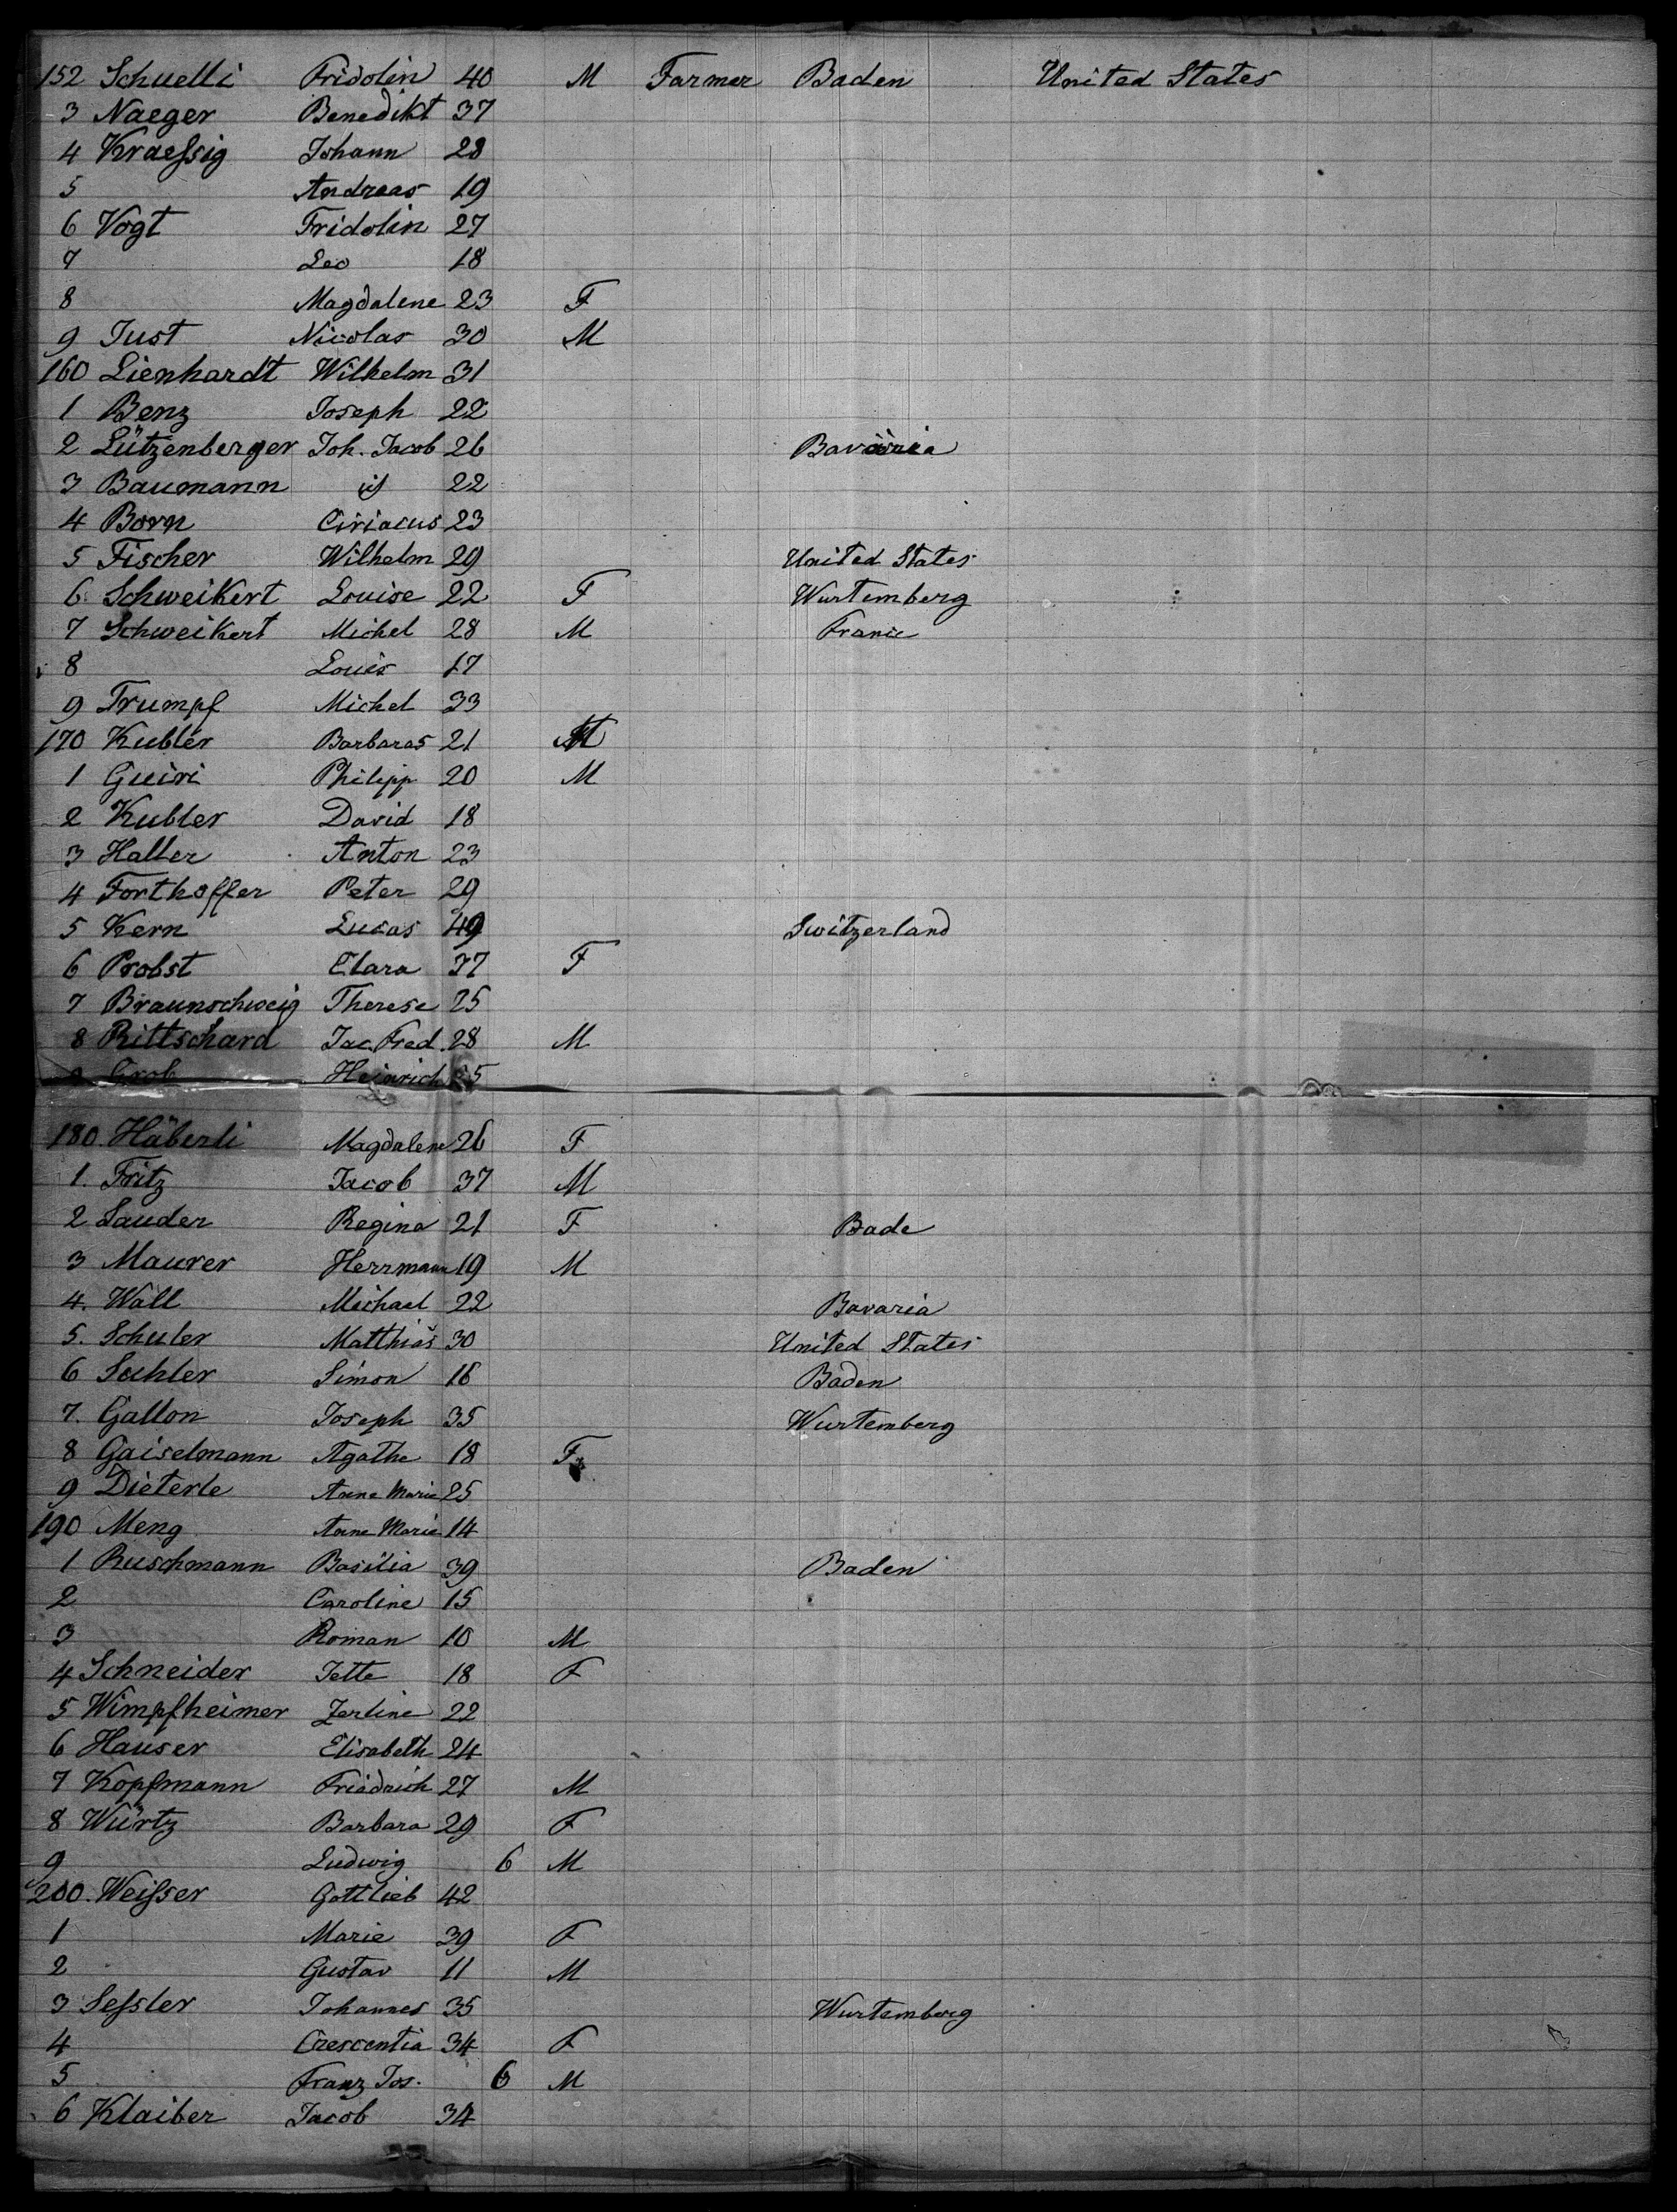 152 Schuelli Fridolin 40 M Farmer Baden United States
3 Naeger Benedikt 37
4 Kraeſsig Johann 28
5 Andreas 19
6 Vogt Fridolin 27
7 Leo 18
8 Magdalene 23 F
9 Just Nicolas 30 M
160 Lienhardt Wilhelm 31
1 Benz Joseph 22
2 Lützenberger Joh. Jacob 26 Bavaria
3 Baumann id 22
4 Born Ciriacus 23
5 Fischer Wilhelm 29 United States
6 Schweikert Louise 22 F Wurtemberg
7 Schweikert Michel 28 M France
8 Louis 17
9 Trumpf Michel 33
170 Kubler Barbaras 21
1 Guiri Philipp 20 M
2 Kubler David 18
3 Haller Anton 23
4 Forthoffer Peter 29
5 Kern Lucas 49 Switzerland
6 Probst Clara 37 F
7 Braunschweig Therese 25
8 Rittschard Jac. Fred. 28 M
9 Grob Heinrich 25
180. Häberli Magdalene 26 F
1. Fritz Jacob 37 M
2 Sauder Regina 21 F Bade
3 Maurer Herrmann 19 M
4. Wall Michael 22 Bavaria
5. Schuler Matthias 30 United States
6 Sahler Simon 16 Baden
7. Gallon Joseph 35 Wurtemberg
8 Gaiselmann Agathe 18 F
9 Dieterle Anne Marie 25
190 Meng Anne Marie 14
1 Ruschmann Basilia 39 Baden
2 Caroline 15
3 Roman 10 M
4 Schneider Jette 18 F
5 Wimpfheimer Zerline 22
6 Hauser Elisabeth 24
7 Kopfmann Friedrich 27 M
8 Würtz Barbara 29 F
9 Ludwig 6 M
200. Weiſser Gottlieb 42
1 Marie 39 F
2 Gustav 11 M
3 Seſsler Johannes 35 Wurtemberg
4 Crescentia 34 F
5 Franz Jos. 6 M
6 Klaiber Jacob 34